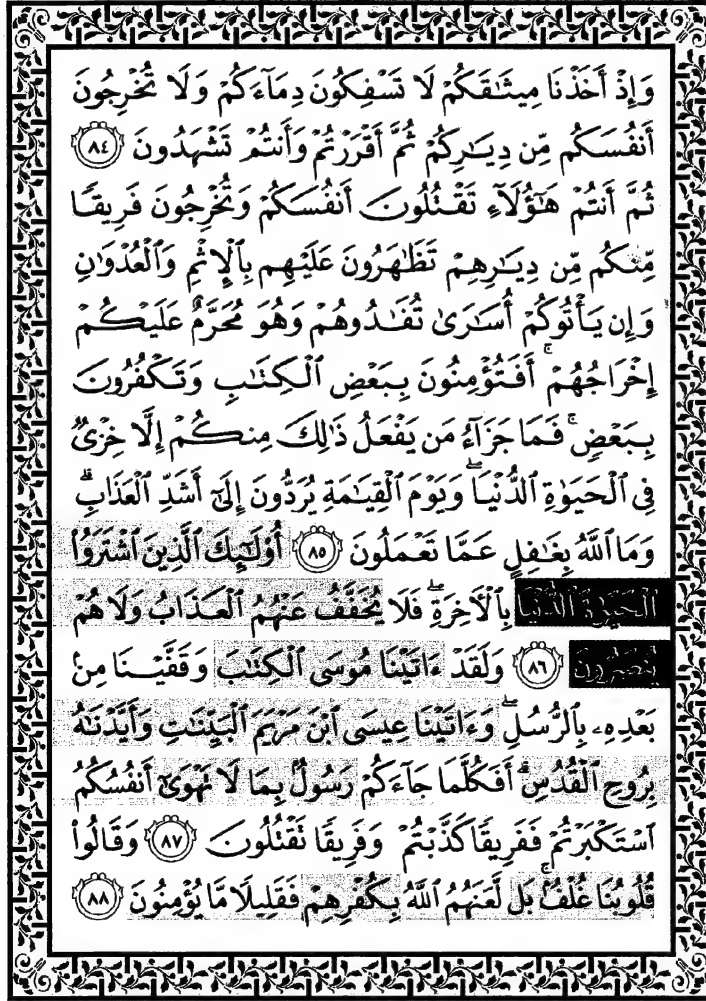 وَإِذْ أَخَذْنَا مِيثَـٰقَكُمْ لَا تَسْفِكُونَ دِمَآءَكُمْ وَلَا تُخْرِجُونَ
أَنفُسَكُم مِّن دِيَـٰرِكُمْ ثُمَّ أَقْرَرْتُمْ وَأَنتُمْ تَشْهَدُونَ ٨٤
ثُمَّ أَنتُمْ هَـٰٓؤُلَآءِ تَقْتُلُونَ أَنفُسَكُمْ وَتُخْرِجُونَ فَرِيقًا
مِّنكُم مِّن دِيَـٰرِهِمْ تَظَـٰهَرُونَ عَلَيْهِم بِٱلْإِثْمِ وَٱلْعُدْوَٰنِ
وَإِن يَأْتُوكُمْ أُسَـٰرَىٰ تُفَـٰدُوهُمْ وَهُوَ مُحَرَّمٌ عَلَيْكُمْ
إِخْرَاجُهُمْ ۚ أَفَتُؤْمِنُونَ بِبَعْضِ ٱلْكِتَـٰبِ وَتَكْفُرُونَ
بِبَعْضٍ ۚ فَمَا جَزَآءُ مَن يَفْعَلُ ذَٰلِكَ مِنكُمْ إِلَّا خِزْىٌ
فِى ٱلْحَيَوٰةِ ٱلدُّنْيَا ۖ وَيَوْمَ ٱلْقِيَـٰمَةِ يُرَدُّونَ إِلَىٰٓ أَشَدِّ ٱلْعَذَابِ ۗ
وَمَا ٱللَّهُ بِغَـٰفِلٍ عَمَّا تَعْمَلُونَ ٨٥ أُو۟لَـٰٓئِكَ ٱلَّذِينَ ٱشْتَرَوُا۟
ٱلْحَيَوٰةَ ٱلدُّنْيَا بِٱلْـَٔاخِرَةِ ۖ فَلَا يُخَفَّفُ عَنْهُمُ ٱلْعَذَابُ وَلَا هُمْ
يُنصَرُونَ ٨٦ وَلَقَدْ ءَاتَيْنَا مُوسَى ٱلْكِتَـٰبَ وَقَفَّيْنَا مِنۢ
بَعْدِهِۦ بِٱلرُّسُلِ ۖ وَءَاتَيْنَا عِيسَى ٱبْنَ مَرْيَمَ ٱلْبَيِّنَـٰتِ وَأَيَّدْنَـٰهُ
بِرُوحِ ٱلْقُدُسِ ۗ أَفَكُلَّمَا جَآءَكُمْ رَسُولٌۢ بِمَا لَا تَهْوَىٰٓ أَنفُسُكُمُ
ٱسْتَكْبَرْتُمْ فَفَرِيقًا كَذَّبْتُمْ وَفَرِيقًا تَقْتُلُونَ ٨٧ وَقَالُوا۟
قُلُوبُنَا غُلْفٌۢ ۚ بَل لَّعَنَهُمُ ٱللَّهُ بِكُفْرِهِمْ فَقَلِيلًا مَّا يُؤْمِنُونَ ٨٨